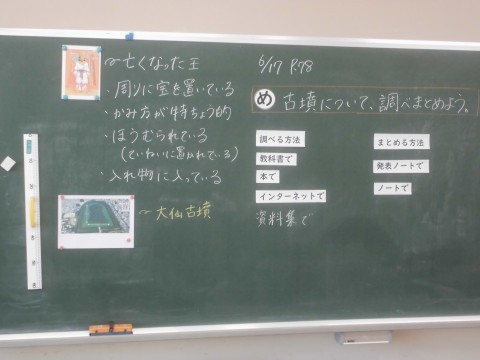 6/17 P.78
め 古墳について、調べまとめよう。
～亡くなった王
・周りに宝を置いている
・かみ方が特ちょう的
・ほうむられている
(ていねいに置かれている)
・入れ物に入っている
～大仙古墳
調べる方法
教科書で
本で
インターネットで
資料集で
まとめる方法
発表ノートで
ノートで